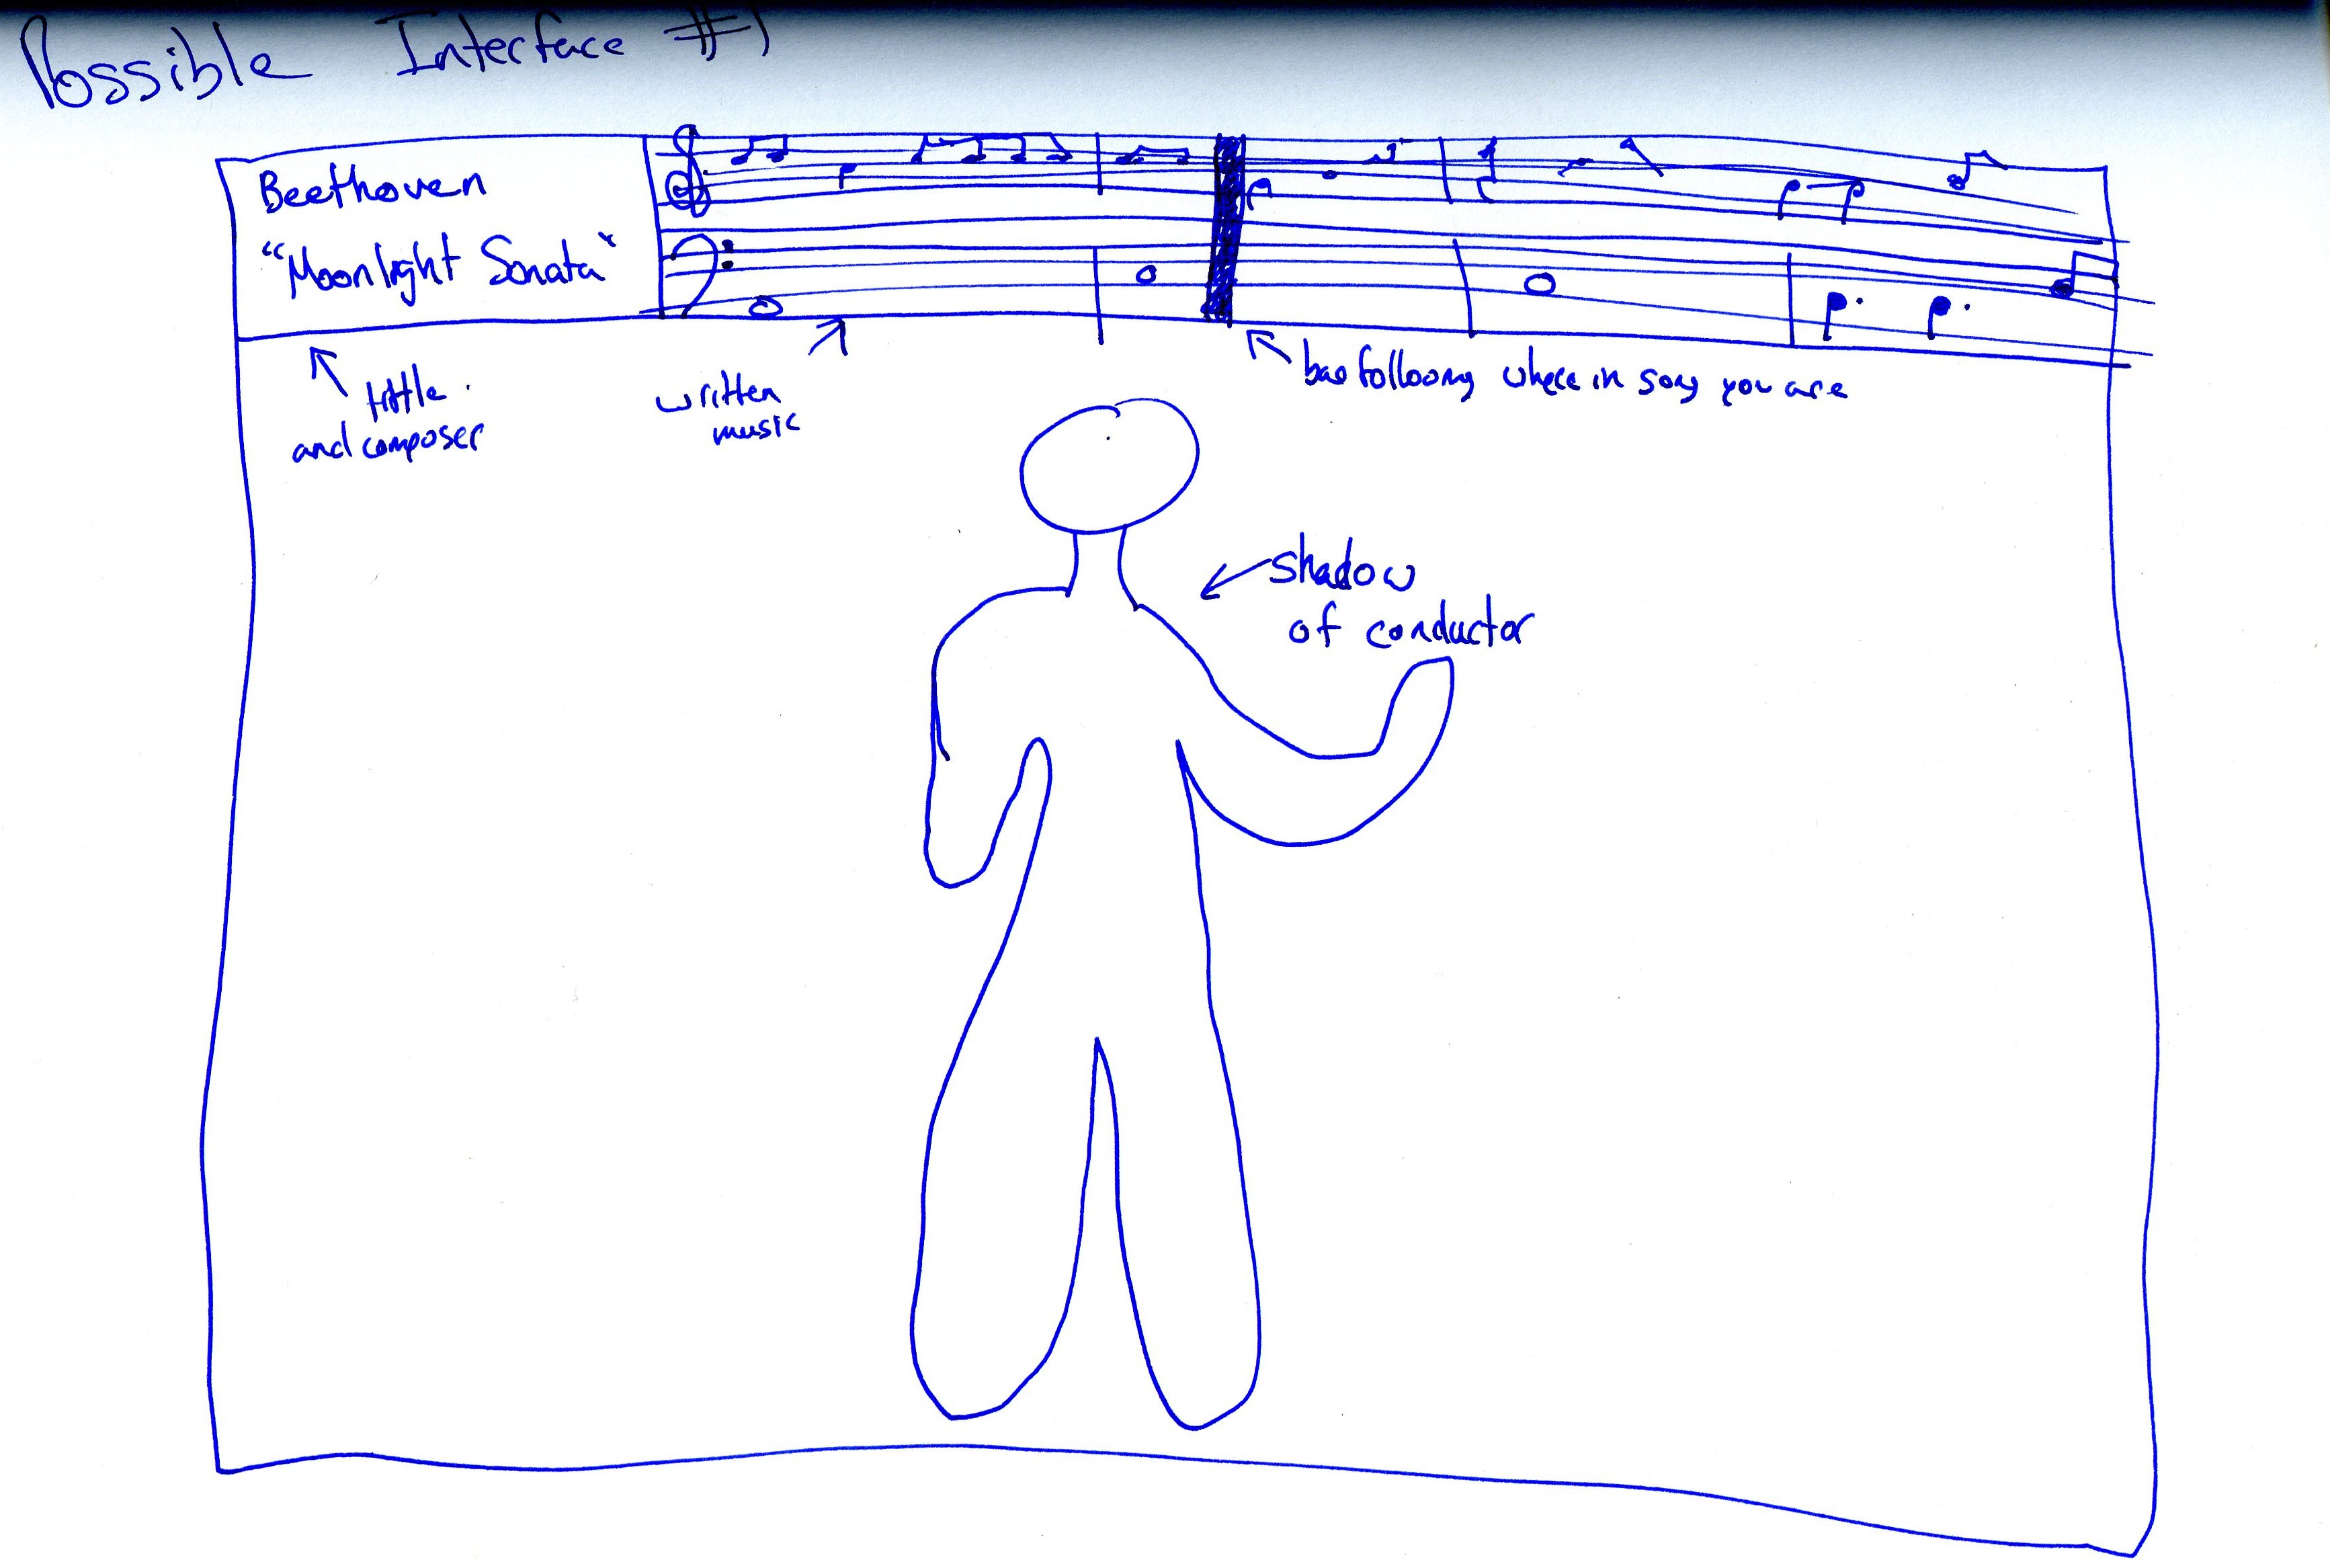 Possible Interface #1
Beethoven
"Moonlight Sonata"
tittle
and composer
written
music
bar following where in song you are
shadow
of conductor